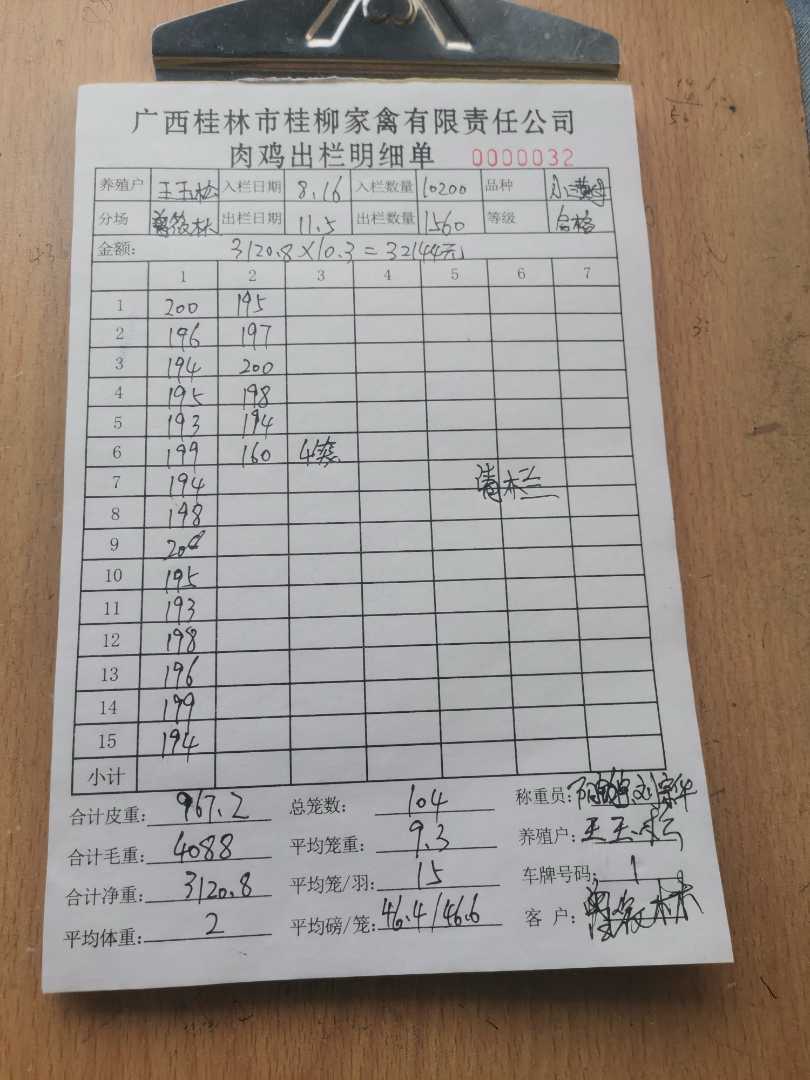 广西桂林市桂柳家禽有限责任公司
肉鸡出栏明细单 0000032
养殖户 王玉松 入栏日期 8.16 入栏数量 10200 品种
分场 出栏日期 11.5 出栏数量 1560 等级 合格
金额: 3120.8×10.3=32144元
1 2 3 4 5 6 7
1 200 195
2 196 197
3 194 200
4 195 198
5 193 194
6 199 160 4笼
7 194 清栏
8 198
9 200
10 195
11 193
12 198
13 196
14 199
15 194
小计
合计皮重: 967.2 总笼数: 104 称重员:
合计毛重: 4088 平均笼重: 9.3 养殖户: 王玉松
合计净重: 3120.8 平均笼/羽: 15 车牌号码: 1
平均体重: 2 平均磅/笼: 46.4/46.6 客户: